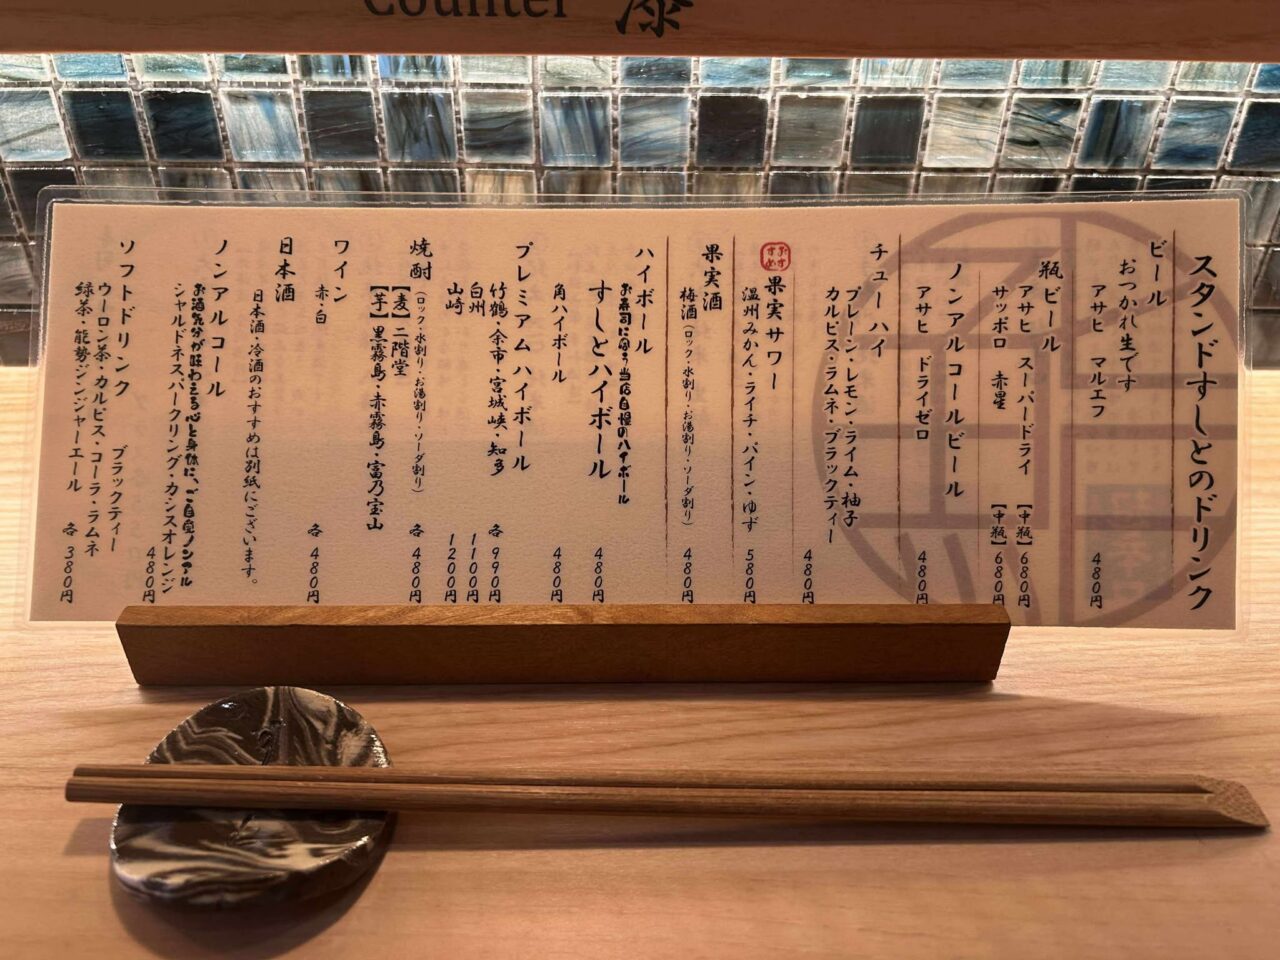 Counter 漆
スタンドすしとのドリンク
ビール
おつかれ生です
アサヒ マルエフ 480円
瓶ビール
アサヒ スーパードライ 【中瓶】680円
サッポロ 赤星 【中瓶】680円
ノンアルコールビール
アサヒ ドライゼロ 480円
チューハイ
プレーン・レモン・ライム・柚子
カルピス・ラムネ・ブラックティー
480円
おすすめ
果実サワー
温州みかん・ライチ・パイン・ゆず 580円
果実酒
梅酒(ロック・水割り・お湯割り・ソーダ割り) 480円
ハイボール
お寿司に合う当店自慢のハイボール
すしとハイボール 480円
角ハイボール 480円
プレミアムハイボール
竹鶴・余市・宮城峡・知多 各990円
白州 1100円
山崎 1200円
焼酎(ロック・水割り・お湯割り・ソーダ割り) 各480円
【麦】二階堂
【芋】黒霧島・赤霧島・富乃宝山
ワイン
赤・白 各480円
日本酒
日本酒・冷酒のおすすめは別紙にございます。
ノンアルコール
お酒気分が味わえる心と身体に、ご自愛ノンアル
シャルドネスパークリング・カシスオレンジ
480円
ソフトドリンク ブラックティー
ウーロン茶・カルピス・コーラ・ラムネ
緑茶・能勢ジンジャーエール 各380円